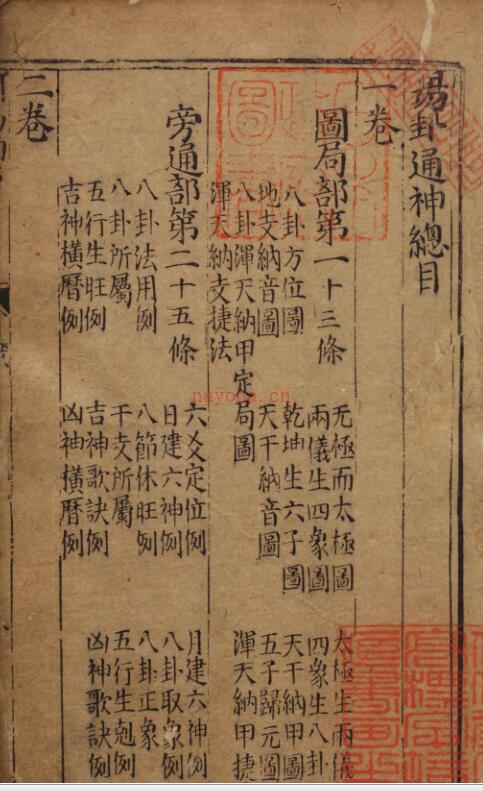 易卦通神總目
一卷
圖局部第一十三條
无極而太極圖 太極生兩儀
兩儀生四象圖 四象生八卦
八卦方位圖 乾坤生六子圖 天干納甲圖
地支納音圖 天干納音圖 五子歸元圖
八卦渾天納甲定局圖 渾天納甲捷
渾天納支捷法
旁通部第二十五條
六爻定位例 月建六神例
日建六神例 八卦取象例
八卦法用例 八節休旺例 八卦正象例
八卦所屬例 干支所屬例 五行生剋例
五行生旺例 吉神歌訣例 凶神歌訣例
吉神橫曆例 凶神橫曆例
二卷
nayona.cn